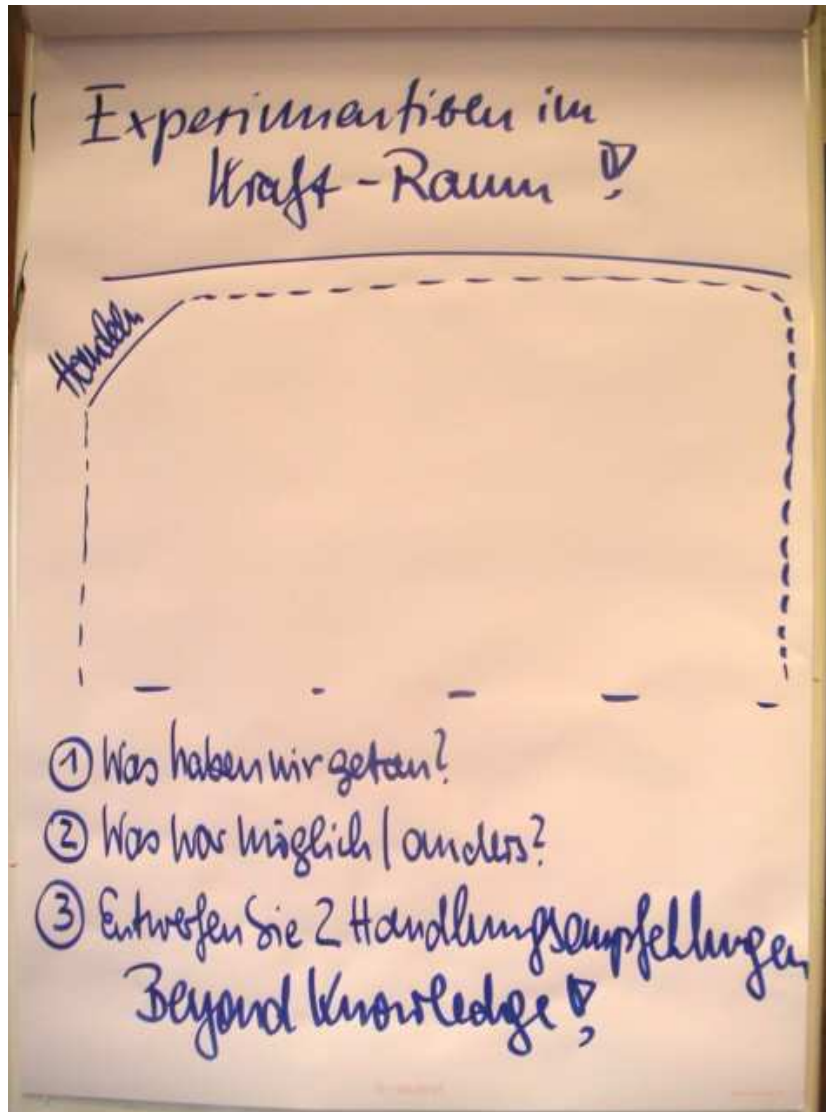 Experimentieren im
Kraft-Raum!
Handeln
① Was haben wir getan?
② Was war möglich / anders?
③ Entwerfen Sie 2 Handlungsempfehlungen
Beyond Knowledge!